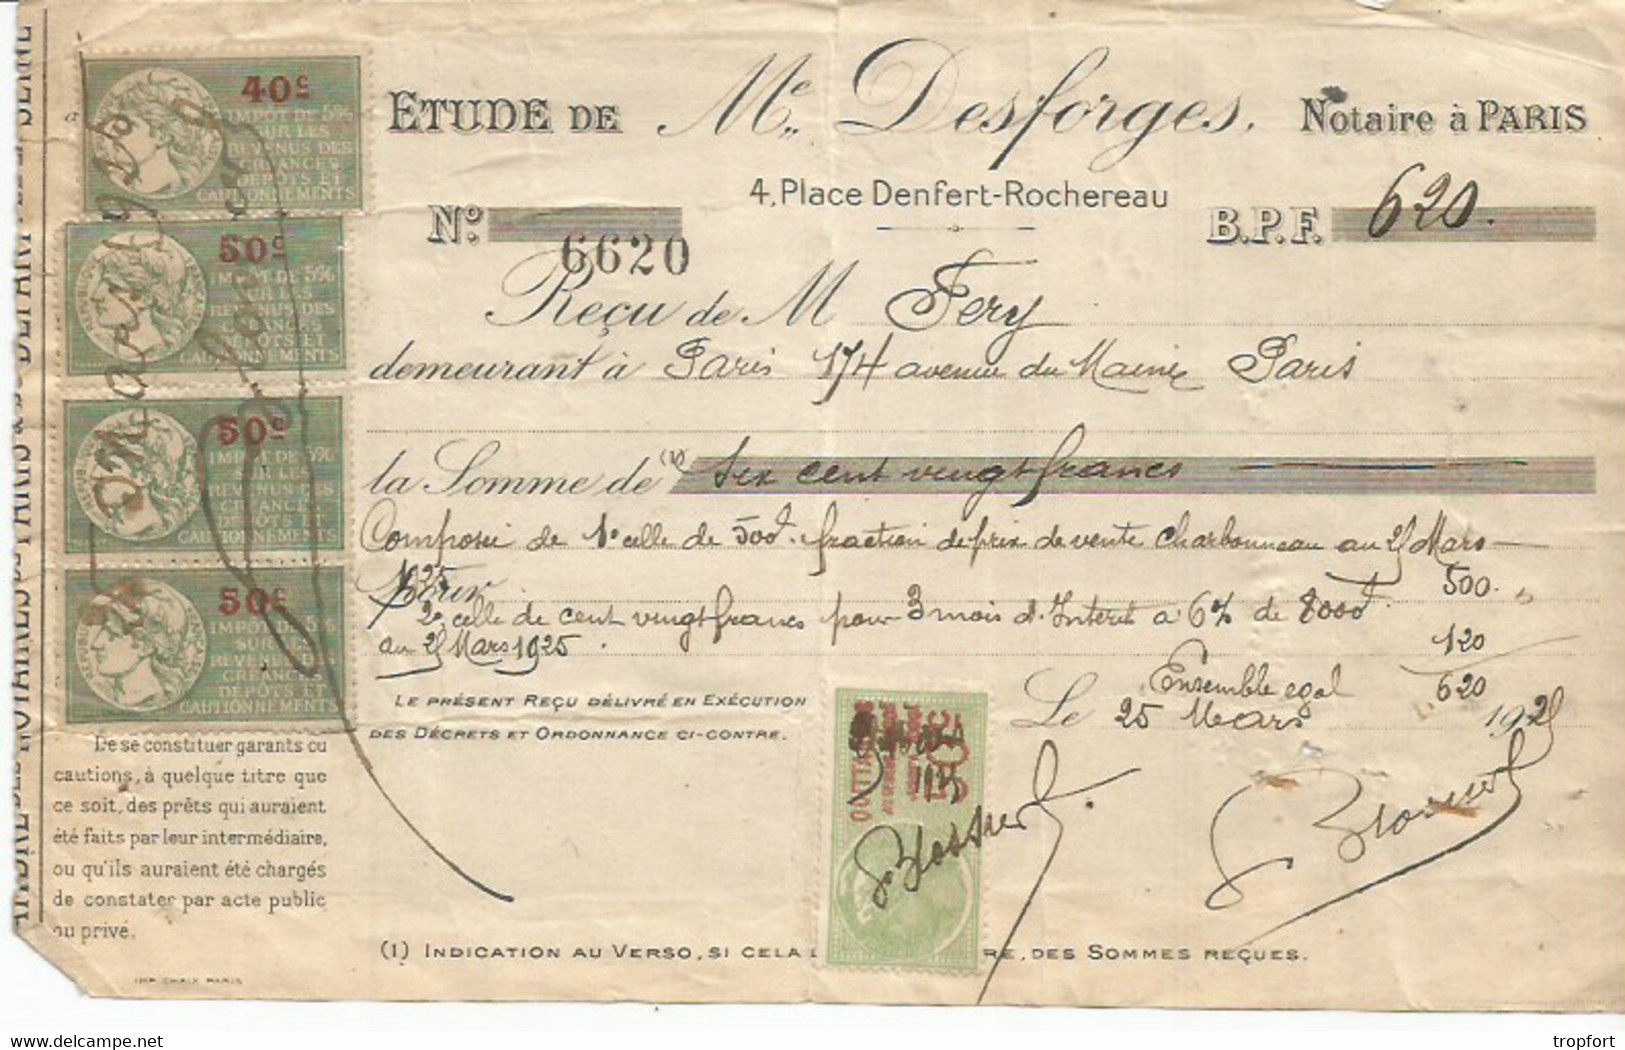 ETUDE DE Me Desforges, Notaire à PARIS
4, Place Denfert-Rochereau
No. 6620
B.P.F. 620.
Reçu de M Fery
demeurant à Paris 174 avenue du Maine Paris
la Somme de (1) Six cent vingt francs
Composée de 1o celle de 500f. fraction de prix de vente Charbonneau au 25 Mars
1925 500.
2o celle de cent vingt francs pour 3 mois d'Intérêts à 6% de 8000f.
au 25 Mars 1925. 120
Ensemble egal 620
Le 25 Mars 1925
LE PRÉSENT REÇU DÉLIVRÉ EN EXÉCUTION
DES DÉCRETS ET ORDONNANCE CI-CONTRE.
(1) INDICATION AU VERSO, SI CELA
RE, DES SOMMES REÇUES.
40c
IMPÔT DE 5%
SUR LES
REVENUS DES
CRÉANCES
DÉPÔTS ET
CAUTIONNEMENTS
50c
IMPÔT DE 5%
SUR LES
REVENUS DES
CRÉANCES
DÉPÔTS ET
CAUTIONNEMENTS
50c
IMPÔT DE 5%
SUR LES
REVENUS DES
CRÉANCES
DÉPÔTS ET
CAUTIONNEMENTS
50c
IMPÔT DE 5%
SUR LES
REVENUS DES
CRÉANCES
DÉPÔTS ET
CAUTIONNEMENTS
De se constituer garants ou
cautions, à quelque titre que
ce soit, des prêts qui auraient
été faits par leur intermédiaire,
ou qu'ils auraient été chargés
de constater par acte public
ou privé.
IMP. CHAIX PARIS
delcampe.net
tropfort